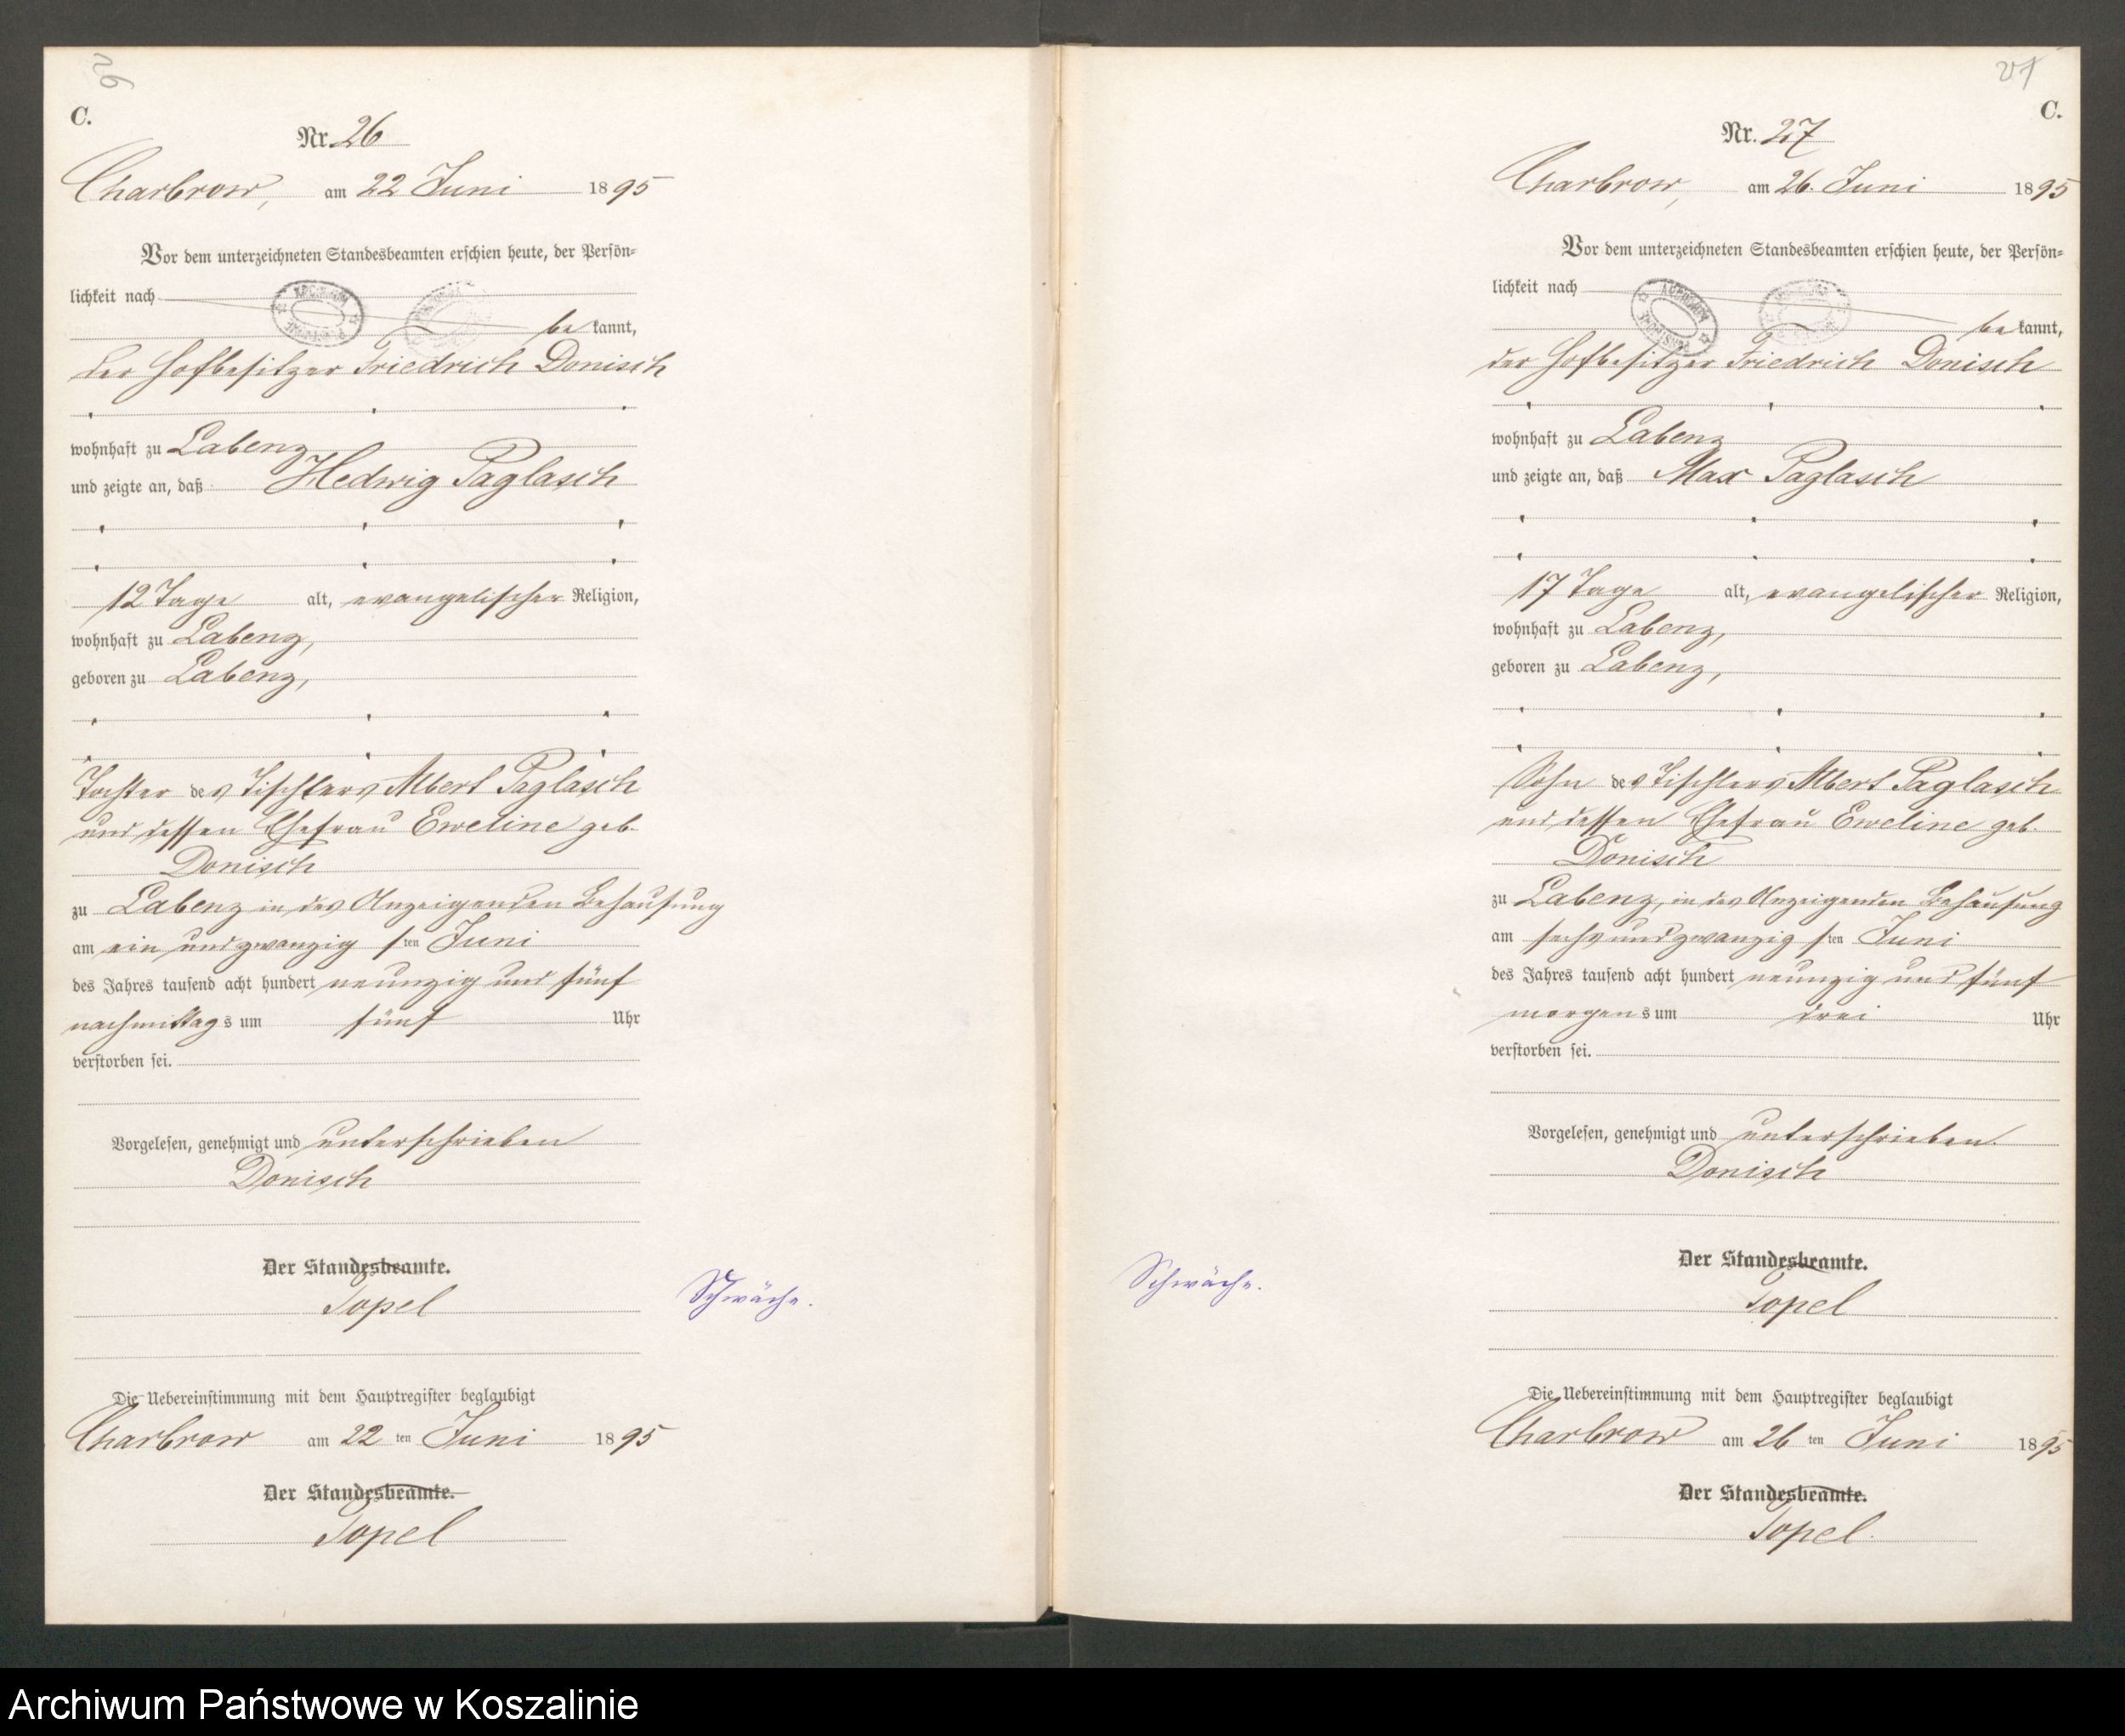 26
C.
Nr. 26
Charbrow, am 22 Juni 1895
Vor dem unterzeichneten Standesbeamten erschien heute, der Persön-
lichkeit nach
be kannt,
der Hofbesitzer Friedrich Donisch
wohnhaft zu Labenz
und zeigte an, daß Hedwig Paglasch
12 Tage alt, evangelischer Religion,
wohnhaft zu Labenz,
geboren zu Labenz,
Tochter des Tischlers Albert Paglasch
und dessen Ehefrau Eweline geb.
Donisch
zu Labenz in des Anzeigenden Behausung
am ein und zwanzig sten Juni
des Jahres tausend acht hundert neunzig und fünf
nachmittags um fünf Uhr
verstorben sei.
Vorgelesen, genehmigt und unterschrieben
Donisch
Der Standesbeamte.
Topel
Schwäche.
Die Uebereinstimmung mit dem Hauptregister beglaubigt
Charbrow am 22 ten Juni 1895
Der Standesbeamte.
Topel
27
C.
Nr. 27
Charbrow, am 26. Juni 1895
Vor dem unterzeichneten Standesbeamten erschien heute, der Persön-
lichkeit nach
be kannt,
der Hofbesitzer Friedrich Donisch
wohnhaft zu Labenz
und zeigte an, daß Max Paglasch
17 Tage alt, evangelischer Religion,
wohnhaft zu Labenz,
geboren zu Labenz,
Sohn des Tischlers Albert Paglasch
und dessen Ehefrau Eweline geb.
Donisch
zu Labenz, in des Anzeigenden Behausung
am sechs und zwanzig sten Juni
des Jahres tausend acht hundert neunzig und fünf
morgens um drei Uhr
verstorben sei.
Vorgelesen, genehmigt und unterschrieben
Donisch
Der Standesbeamte.
Topel
Schwäche.
Die Uebereinstimmung mit dem Hauptregister beglaubigt
Charbrow am 26 ten Juni 1895
Der Standesbeamte.
Topel.
Archiwum Państwowe w Koszalinie